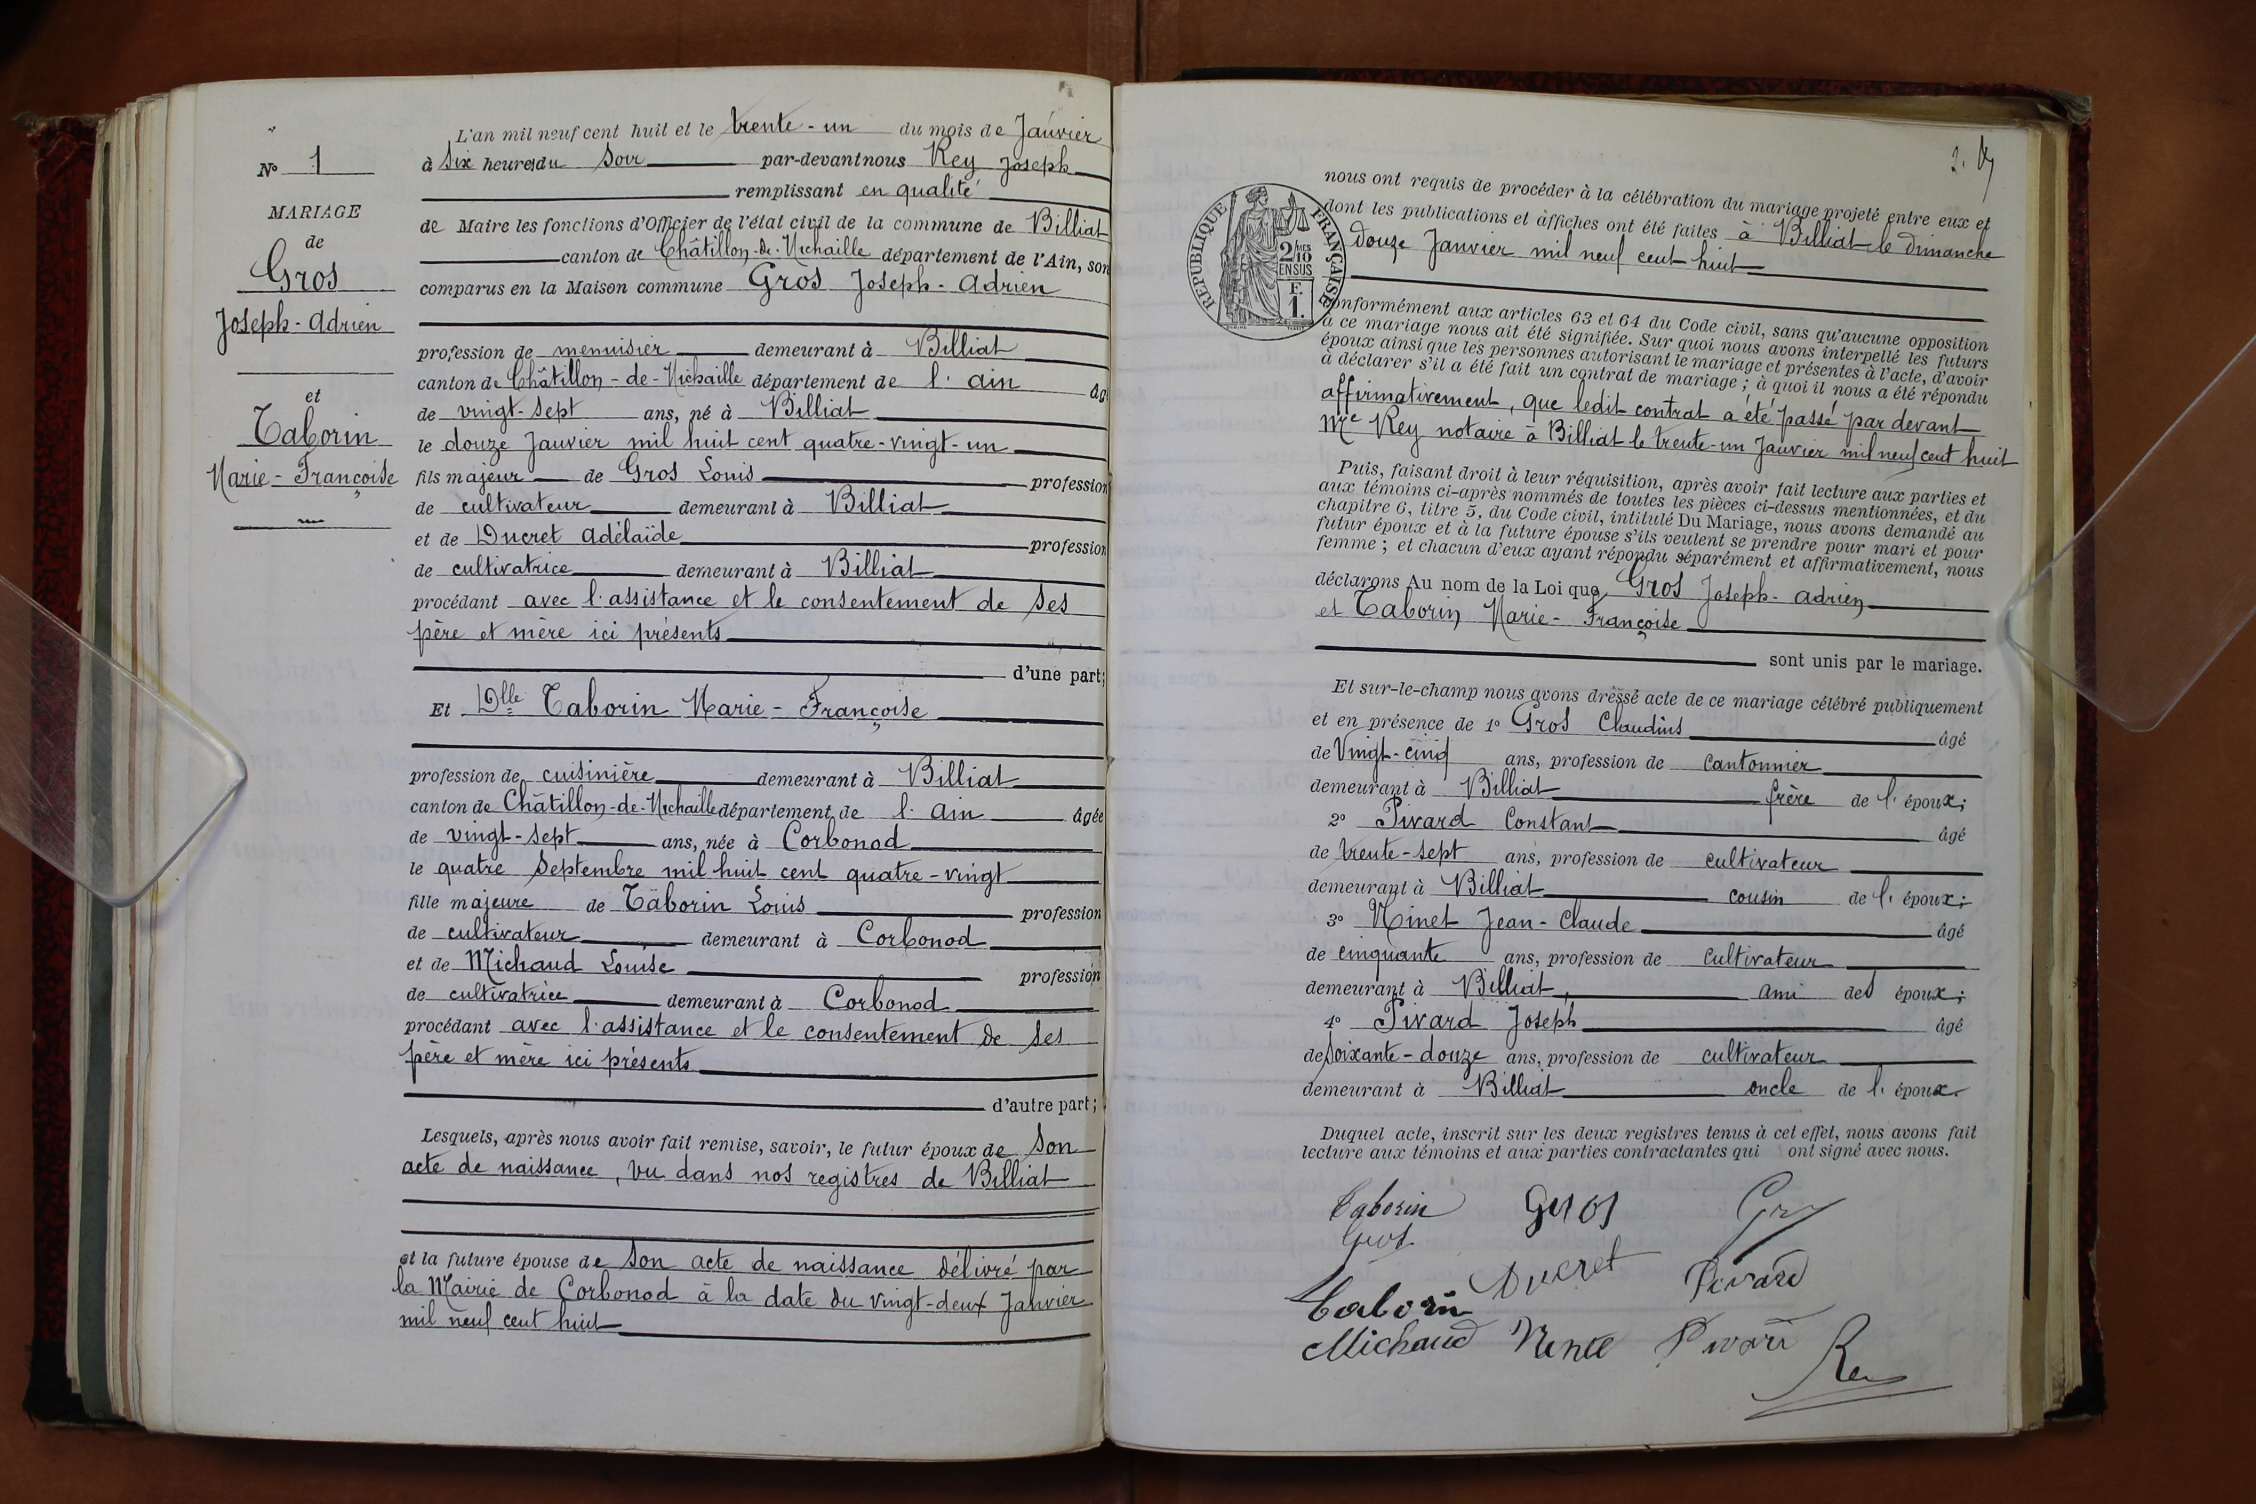 N° 1
MARIAGE
de
Gros
Joseph-Adrien
et
Taborin
Marie-Françoise
L'an mil neuf cent huit et le trente-un du mois de Janvier
à six heures du soir par-devant nous Rey Joseph
remplissant en qualité
de Maire les fonctions d'Officier de l'état civil de la commune de Billiat
canton de Châtillon-de-Michaille département de l'Ain, son
comparus en la Maison commune Gros Joseph-Adrien
profession de menuisier demeurant à Billiat
canton de Châtillon-de-Michaille département de l'ain âg
de vingt-sept ans, né à Billiat
le douze Janvier mil huit cent quatre-vingt-un
fils majeur de Gros Louis profession
de cultivateur demeurant à Billiat
et de Ducret adélaïde profession
de cultivatrice demeurant à Billiat
procédant avec l'assistance et le consentement de ses
père et mère ici présents
d'une part;
Et Dlle Taborin Marie-Françoise
profession de cuisinière demeurant à Billiat
canton de Châtillon-de-Michaille département de l'ain âgée
de vingt-sept ans, née à Corbonod
le quatre Septembre mil huit cent quatre-vingt
fille majeure de Taborin Louis profession
de cultivateur demeurant à Corbonod
et de Michaud Louise profession
de cultivatrice demeurant à Corbonod
procédant avec l'assistance et le consentement de ses
père et mère ici présents
d'autre part;
Lesquels, après nous avoir fait remise, savoir, le futur époux de son
acte de naissance, vu dans nos registres de Billiat
et la future épouse de son acte de naissance délivré par
la Mairie de Corbonod à la date du vingt-deux Janvier
mil neuf cent huit
2.
RÉPUBLIQUE FRANÇAISE
2/10
EN SUS
F.
1.
nous ont requis de procéder à la célébration du mariage projeté entre eux et
dont les publications et affiches ont été faites à Billiat le dimanche
douze Janvier mil neuf cent huit
conformément aux articles 63 et 64 du Code civil, sans qu'aucune opposition
à ce mariage nous ait été signifiée. Sur quoi nous avons interpellé les futurs
époux ainsi que les personnes autorisant le mariage et présentes à l'acte, d'avoir
à déclarer s'il a été fait un contrat de mariage; à quoi il nous a été répondu
affirmativement, que ledit contrat a été passé par devant
Me Rey notaire à Billiat le trente-un Janvier mil neuf cent huit
Puis, faisant droit à leur réquisition, après avoir fait lecture aux parties et
aux témoins ci-après nommés de toutes les pièces ci-dessus mentionnées, et du
chapitre 6, titre 5, du Code civil, intitulé Du Mariage, nous avons demandé au
futur époux et à la future épouse s'ils veulent se prendre pour mari et pour
femme; et chacun d'eux ayant répondu séparément et affirmativement, nous
déclarons Au nom de la Loi que Gros Joseph-adrien
et Taborin Marie-Françoise
sont unis par le mariage.
Et sur-le-champ nous avons dressé acte de ce mariage célébré publiquement
et en présence de 1° Gros Claudius âgé
de Vingt-cinq ans, profession de cantonnier
demeurant à Billiat frère de l'époux;
2° Pivard Constant âgé
de trente-sept ans, profession de cultivateur
demeurant à Billiat cousin de l'époux;
3° Ninet Jean-Claude âgé
de cinquante ans, profession de cultivateur
demeurant à Billiat, ami des époux;
4° Pivard Joseph âgé
de soixante-douze ans, profession de cultivateur
demeurant à Billiat oncle de l'époux.
Duquel acte, inscrit sur les deux registres tenus à cet effet, nous avons fait
lecture aux témoins et aux parties contractantes qui ont signé avec nous.
Taborin Gros
Gros
Ducret Pivard
Taborin
Michaud Pivard
Rey